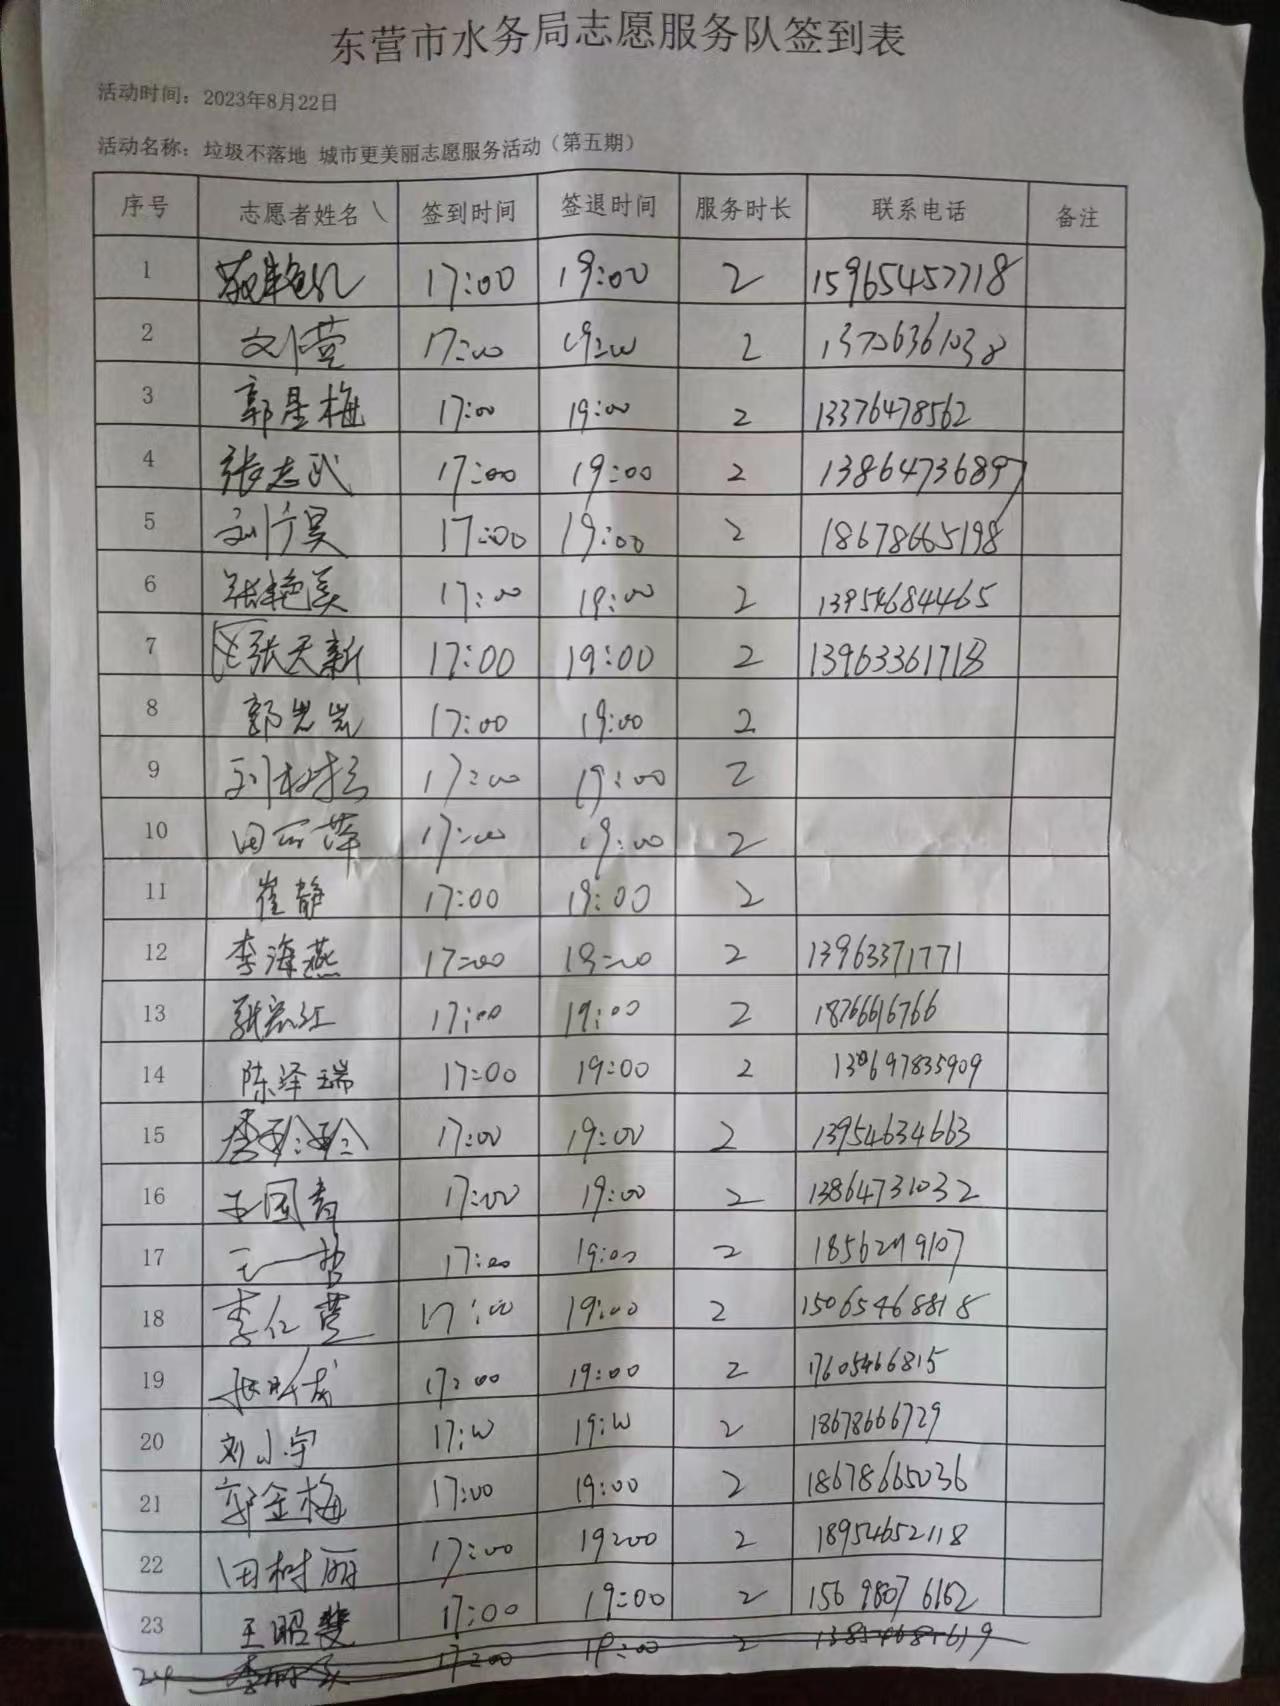 东营市水务局志愿服务队签到表
活动时间：2023年8月22日
活动名称：垃圾不落地 城市更美丽志愿服务活动（第五期）
序号 志愿者姓名 签到时间 签退时间 服务时长 联系电话 备注
1 17:00 19:00 2 15965457718
2 刘营 17:00 19:00 2 13706361038
3 郭星梅 17:00 19:00 2 13376478562
4 张志武 17:00 19:00 2 13864736897
5 刘广昊 17:00 19:00 2 18678665198
6 张艳美 17:00 19:00 2 13954684465
7 张天新 17:00 19:00 2 13963361718
8 郭岩岩 17:00 19:00 2
9 17:00 19:00 2
10 田丽萍 17:00 19:00 2
11 崔静 17:00 19:00 2
12 李海燕 17:00 19:00 2 13963371771
13 张宏江 17:00 19:00 2 18766616766
14 陈泽瑞 17:00 19:00 2 130697835909
15 17:00 19:00 2 13954634663
16 王国青 17:00 19:00 2 13864731032
17 王一哲 17:00 19:00 2
18 李仁萱 17:00 19:00 2 15065468818
19 17:00 19:00 2 17605466815
20 刘小宇 17:00 19:00 2 18678666729
21 郭金梅 17:00 19:00 2 18678665036
22 田树丽 17:00 19:00 2 18954652118
23 王昭斐 17:00 19:00 2 156 9807 6162
24 17:00 19:00 2